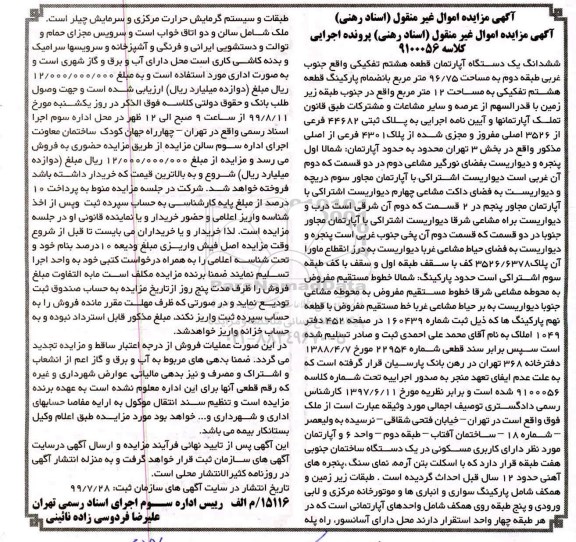 آگهی مزایده اموال غیر منقول (اسناد رهنی)
آگهی مزایده اموال غیر منقول (اسناد رهنی) پرونده اجرایی
کلاسه ۹۱۰۰۰۵۶
ششدانگ یک دستگاه آپارتمان قطعه هشتم تفکیکی واقع جنوب
غربی طبقه دوم به مساحت ۹۶/۷۵ متر مربع بانضمام پارکینگ قطعه
هشتم تفکیکی به مساحت ۱۲ متر مربع واقع در جنوب طبقه زیر
زمین با قدرالسهم از عرصه و سایر مشاعات و مشترکات طبق قانون
تملک آپارتمانها و آیین نامه اجرایی به پلاک ثبتی ۴۴۶۸۲ فرعی
از ۳۵۲۶ اصلی مفروز و مجزی شده از پلاک ۴۳۰۱ فرعی از اصلی
مذکور واقع در بخش ۳ تهران محدود به حدود آپارتمان: شمالا اول
پنجره و دیواریست بفضای نورگیر مشاعی دوم در دو قسمت که دوم
آن غربی است دیواریست اشتراکی با آپارتمان مجاور سوم دریچه
و دیواریست به فضای داکت مشاعی چهارم دیواریست اشتراکی با
آپارتمان مجاور پنجم در ۲ قسمت که دوم آن شرقی است درب و
دیواریست براه مشاعی شرقا دیواریست اشتراکی با آپارتمان مجاور
جنوبا در دو قسمت که قسمت دوم آن پخی جنوب غربی است پنجره و
دیواریست به فضای حیاط مشاعی غربا دیواریست به درز انقطاع ماورا
آن پلاک ۳۵۲۶/۶۳۷۸ کف با سقف طبقه اول و سقف با کف طبقه
سوم اشتراکی است حدود پارکینگ: شمالا خطوط مستقیم مفروض
به محوطه مشاعی شرقا خطوط مستقیم مفروض به محوطه مشاعی
جنوبا دیواریست به بر حیاط مشاعی غربا خط مستقیم مفروض با قطعه
نهم پارکینگ ها که ذیل ثبت شماره ۱۶۰۴۳۹ در صفحه ۴۵۲ دفتر
۱۰۴۹ املاک به نام آقای محمد علی احمدی ثبت و صادر تسلیم شده
است سپس برابر سند قطعی شماره ۲۲۹۵۴ مورخ ۱۳۸۸/۴/۷
دفترخانه ۳۶۸ تهران در رهن بانک پارسیان قرار گرفته است که
به علت عدم ایفای تعهد منجر به صدور اجراییه تحت شماره کلاسه
۹۱۰۰۰۵۶ شده است و برابر نظریه مورخ ۱۳۹۷/۶/۱۱ کارشناس
رسمی دادگستری توصیف اجمالی مورد وثیقه عبارت است از ملک
فوق واقع است در تهران – خیابان فتحی شقاقی – نرسیده به ولیعصر
– شماره ۱۸ – ساختمان آفتاب – طبقه دوم – واحد ۶ و آپارتمان
مورد نظر دارای کاربری مسکونی در یک دستگاه ساختمان جنوبی
هفت طبقه قرار دارد که با اسکلت بتن آرمه، نمای سنگ، پنجره های
آهنی حدود ۱۲ سال قبل احداث گردیده است . طبقات زیر زمین و
همکف شامل پارکینگ سواری و انباری ها و موتورخانه مرکزی و لابی
ورودی و پنج طبقه روی همکف شامل واحدهای آپارتمانی است که در
هر طبقه چهار واحد استقرار دارند محل دارای آسانسور، راه پله
طبقات و سیستم گرمایش حرارت مرکزی و سرمایش چیلر است.
ملک شامل سالن و دو اتاق خواب است و سرویس مجزای حمام و
توالت و دستشویی ایرانی و فرنگی و آشپزخانه و سرویسها سرامیک
و بدنه کاشی کاری است محل دارای آب و برق و گاز شهری است و
به صورت اداری مورد استفاده است و به مبلغ ۱۲/۰۰۰/۰۰۰/۰۰۰
ریال مبلغ (دوازده میلیارد ریال) ارزیابی شده است و جهت وصول
طلب بانک و حقوق دولتی کلاسه فوق الذکر در روز یکشنبه مورخ
۹۹/۸/۱۱ از ساعت ۹ صبح الی ۱۲ ظهر در محل اداره سوم اجرا
اسناد رسمی واقع در تهران – چهارراه جهان کودک ساختمان معاونت
اجرای اداره سوم سالن مزایده از طریق مزایده حضوری به فروش
می رسد و مزایده از مبلغ ۱۲/۰۰۰/۰۰۰/۰۰۰ ریال مبلغ (دوازده
میلیارد ریال) شروع و به بالاترین قیمت که خریدار داشته باشد
فروخته خواهد شد. شرکت در جلسه مزایده منوط به پرداخت ۱۰
درصد از مبلغ پایه کارشناسی به حساب سپرده ثبت وپس از اخذ
شناسه واریز اعلامی و حضور خریدار و یا نماینده قانونی او در جلسه
مزایده است. لذا خریدار و یا خریداران می بایست تا قبل از شروع
وقت مزایده اصل فیش واریزی مبلغ ودیعه ۱۰ درصد بنام خود و
تحت شناسه اعلامی را به همراه درخواست کتبی خود به واحد اجرا
تسلیم نمایند ضمنا برنده مزایده مکلف است مابه التفاوت مبلغ
فروش را ظرف مدت پنج روز ازتاریخ مزایده به حساب صندوق ثبت
تودیع نماید و در صورتی که ظرف مهلت مقرر مانده فروش را به
حساب سپرده ثبت واریز نکند، مبلغ مذکور قابل استرداد نبوده و به
حساب خزانه واریز خواهدشد.
در این صورت عملیات فروش از درجه اعتبار ساقط و مزایده تجدید
می گردد. ضمنا بدهی های مربوط به آب و برق و گاز اعم از انشعاب
و اشتراک و مصرف و نیز بدهی مالیاتی، عوارض شهرداری و غیره
که رقم قطعی آنها برای این اداره معلوم نشده است به عهده برنده
مزایده است و تنظیم سند انتقال موکول به ارایه مفاصا حسابهای
اداری و شهرداری و... خواهد بود مورد مزایده طبق اعلام وکیل
بستانکار بیمه می باشد.
این آگهی پس از تایید نهائی فرآیند مزایده و ارسال آگهی درسایت
آگهی های سازمان ثبت قرار خواهد گرفت و به منزله انتشار آگهی
در روزنامه کثیرالانتشار محلی است.
تاریخ انتشار در سایت آگهی های سازمان ثبت: ۹۹/۷/۲۸
۱۵۱۱۶/م الف رییس اداره سوم اجرای اسناد رسمی تهران
علیرضا فردوسی زاده نائینی